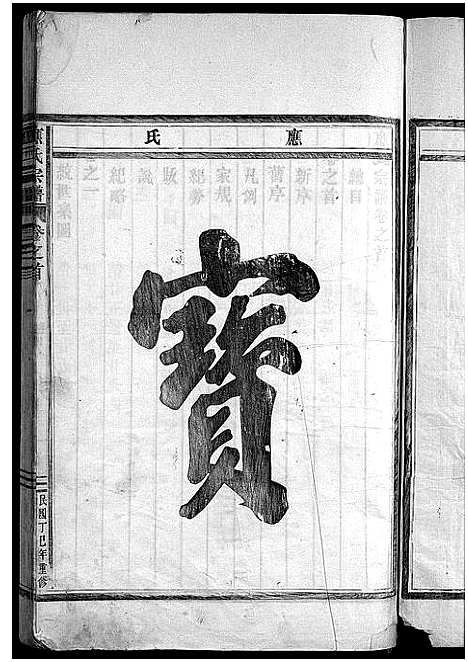 應氏
寶
應氏宗譜 卷之首
民國丁巳年重修
宗譜卷之首
總目
卷之首
新序
舊序
凡例
家規
紀勞
紀略
卷之一